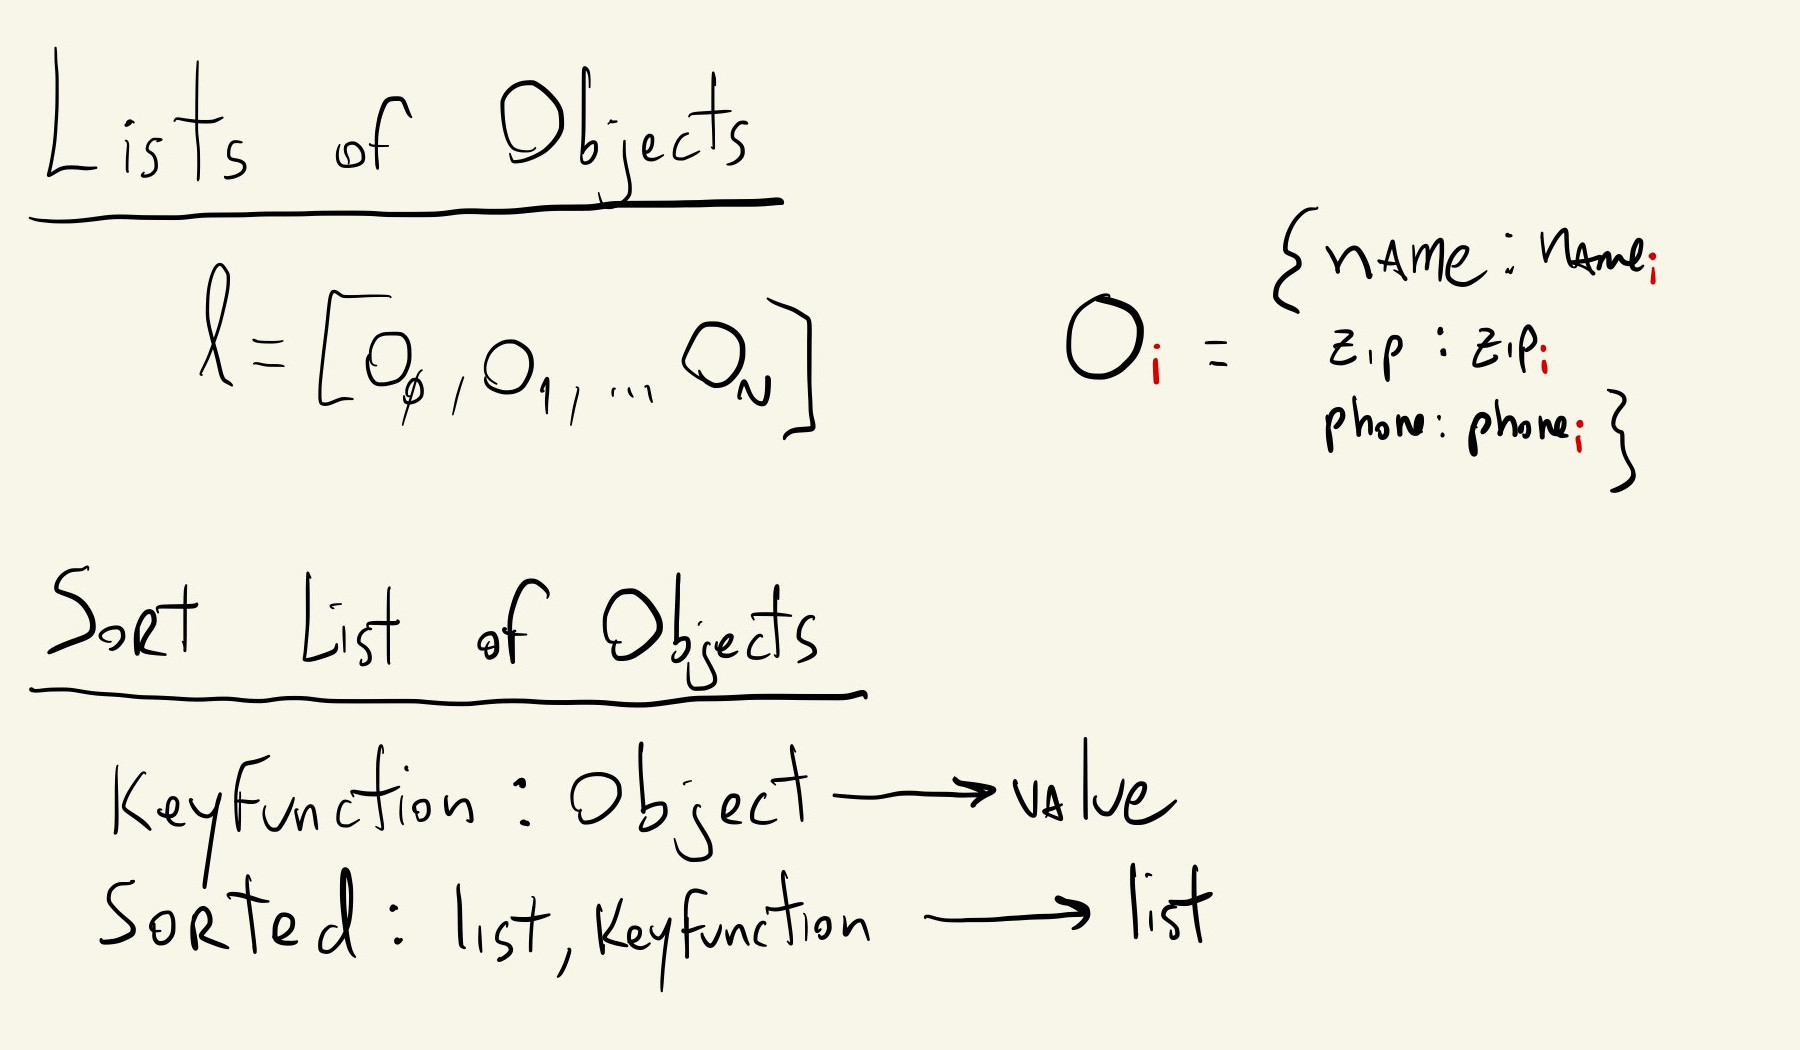 Lists of Objects
l = [O0, O1, ... ON]
Oi = {name : namei
zip : zipi
phone : phonei}
Sort List of Objects
KeyFunction : Object → value
Sorted : list, KeyFunction → list